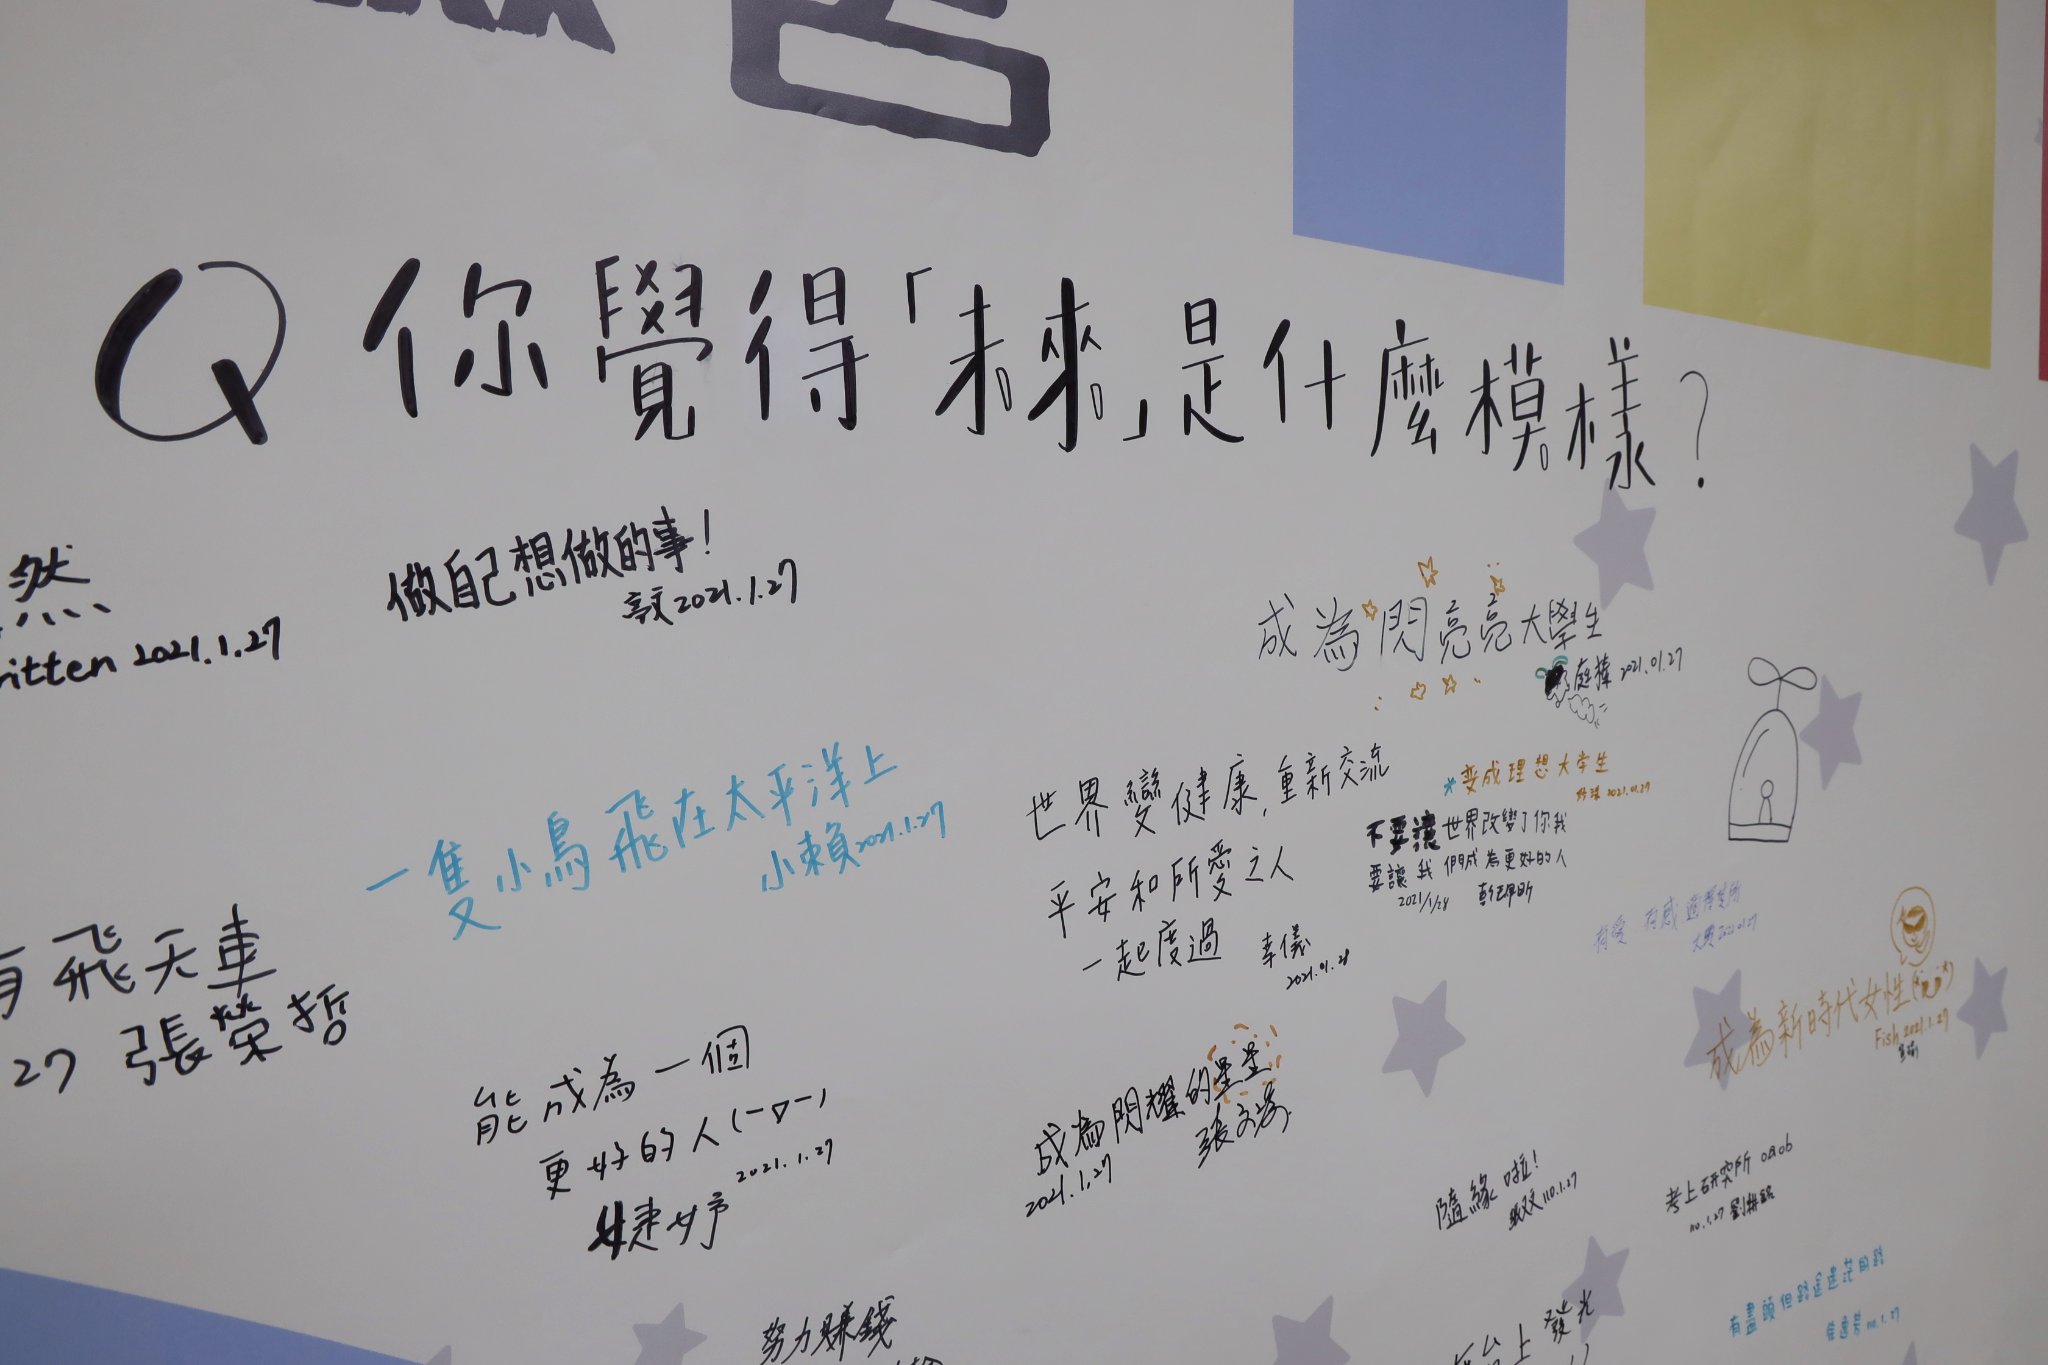 Q 你覺得「未來」是什麼模樣?
然
ritten 2021.1.27
做自己想做的事!
2021.1.27
成為閃亮亮大學生
2021.01.27
一隻小鳥飛在太平洋上
小賴 2021.1.27
世界變健康,重新交流
平安和所愛之人
一起度過 幸儀
2021.01.28
*变成理想大学生
2021.01.27
不要讓世界改變了你我
要讓我們成為更好的人
2021/1/28
飛天車
27 張榮哲
能成為一個
更好的人(-▽-)
2021.1.27
婕妤
成為閃耀的星星
2021.1.27
成為新時代女性
Fish 2021.1.27
隨緣啦!
110.1.27
考上研究所
110.1.27
努力賺錢
上發光